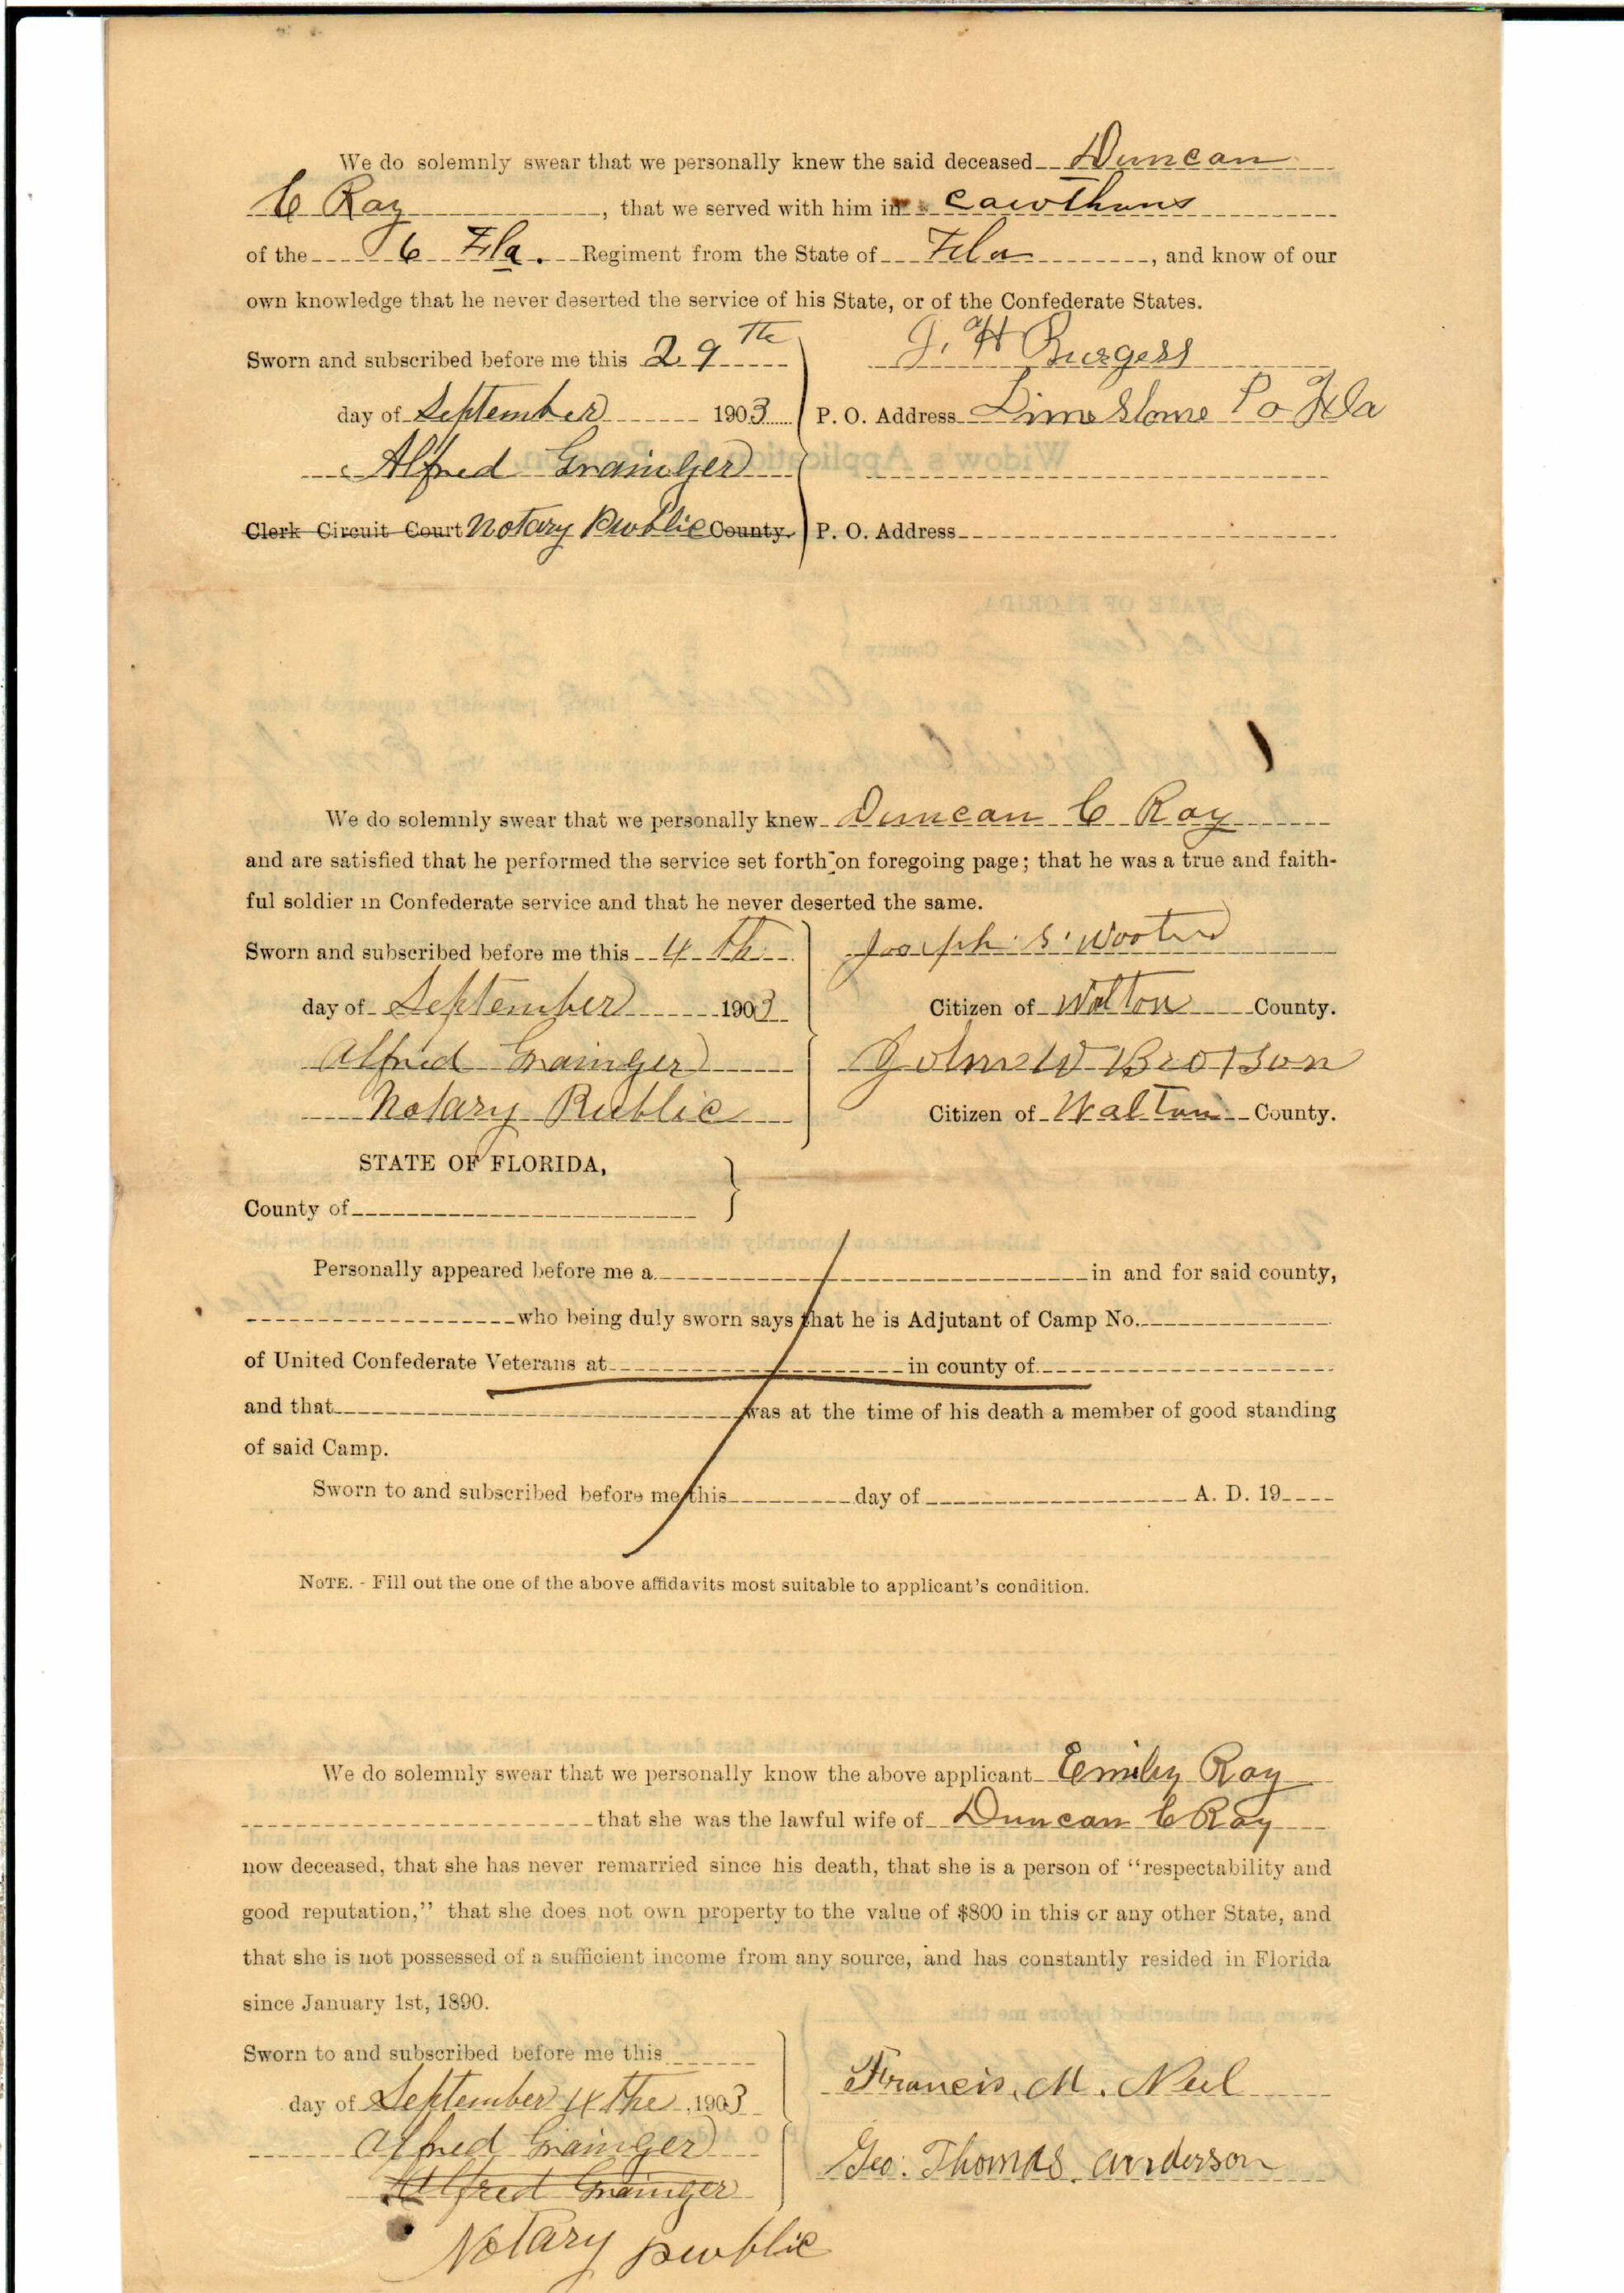 We do solemnly swear that we personally knew the said deceased Duncan
C Ray, that we served with him in Cawthons
of the 6 Fla. Regiment from the State of Fla, and know of our
own knowledge that he never deserted the service of his State, or of the Confederate States.
Sworn and subscribed before me this 29th
J. H Burgess
day of September 1903
P. O. Address Lime Stone Po Fla
Alfred Grainger
Clerk Circuit Court Notary Public County.
P. O. Address
We do solemnly swear that we personally knew Duncan C Ray
and are satisfied that he performed the service set forth on foregoing page; that he was a true and faith-
ful soldier in Confederate service and that he never deserted the same.
Sworn and subscribed before me this 4 th
Joseph S. Wooten
day of September 1903
Citizen of Walton County.
Alfred Grainger
John W Brotson
Notary Public
Citizen of Walton County.
STATE OF FLORIDA,
County of
Personally appeared before me a in and for said county,
who being duly sworn says that he is Adjutant of Camp No.
of United Confederate Veterans at in county of
and that was at the time of his death a member of good standing
of said Camp.
Sworn to and subscribed before me this day of A. D. 19
NOTE. - Fill out the one of the above affidavits most suitable to applicant's condition.
We do solemnly swear that we personally know the above applicant Emily Ray
that she was the lawful wife of Duncan C Ray
now deceased, that she has never remarried since his death, that she is a person of "respectability and
good reputation," that she does not own property to the value of $800 in this or any other State, and
that she is not possessed of a sufficient income from any source, and has constantly resided in Florida
since January 1st, 1890.
Sworn to and subscribed before me this
day of September 4 the, 1903
Francis. M. Neel
Alfred Grainger
Geo. Thomas. anderson
Alfred Grainger
Notary public